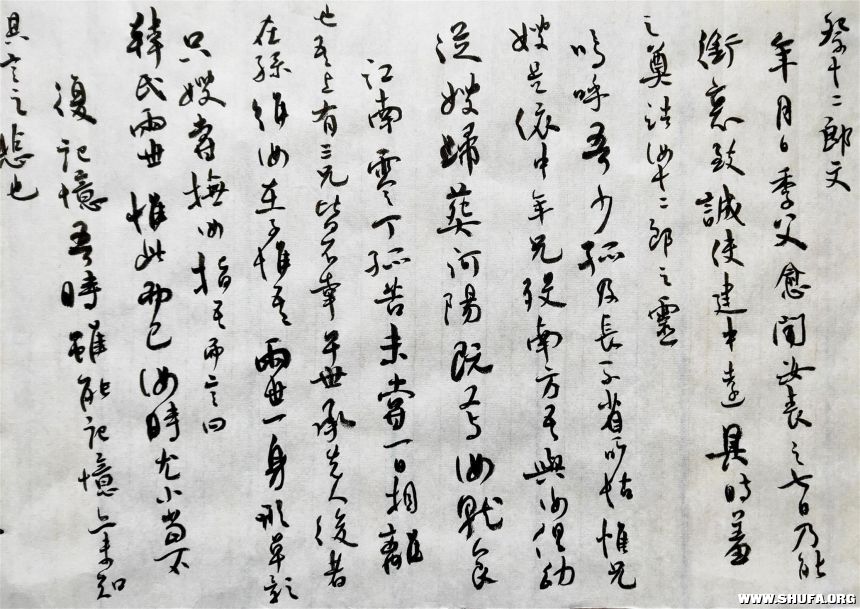 祭十二郎文
年月日季父愈聞汝喪之七日乃能
銜哀致誠使建中遠具時羞
之奠告汝十二郎之靈
嗚呼吾少孤及長不省所怙惟兄
嫂是依中年兄歿南方吾與汝俱幼
從嫂歸葬河陽既又与汝就食
江南零丁孤苦未嘗一日相離
也吾上有三兄皆不幸早世承先人後者
在孫惟汝在子惟吾兩世一身形單影
只嫂嘗撫汝指吾而言曰
韓氏兩世惟此而已汝時尤小當不
復記憶吾時雖能記憶亦未知
其言之悲也
WWW.SHUFA.ORG